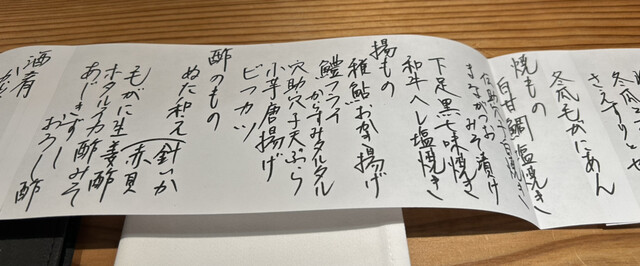 冬瓜毛がにあん
焼もの
白甘鯛塩焼き
まながつおみそ漬け
下足黒七味焼き
和牛ヘレ塩焼き
揚もの
稚鮎おかき揚げ
鱧フライ
からすみタルタル
穴助穴子天ぷら
小芋唐揚げ
ビフカツ
酢のもの
ぬた和え(針いか
赤貝
毛がに生姜酢
ホタルイカ酢みそ
あじきずし
おろし酢
酒肴